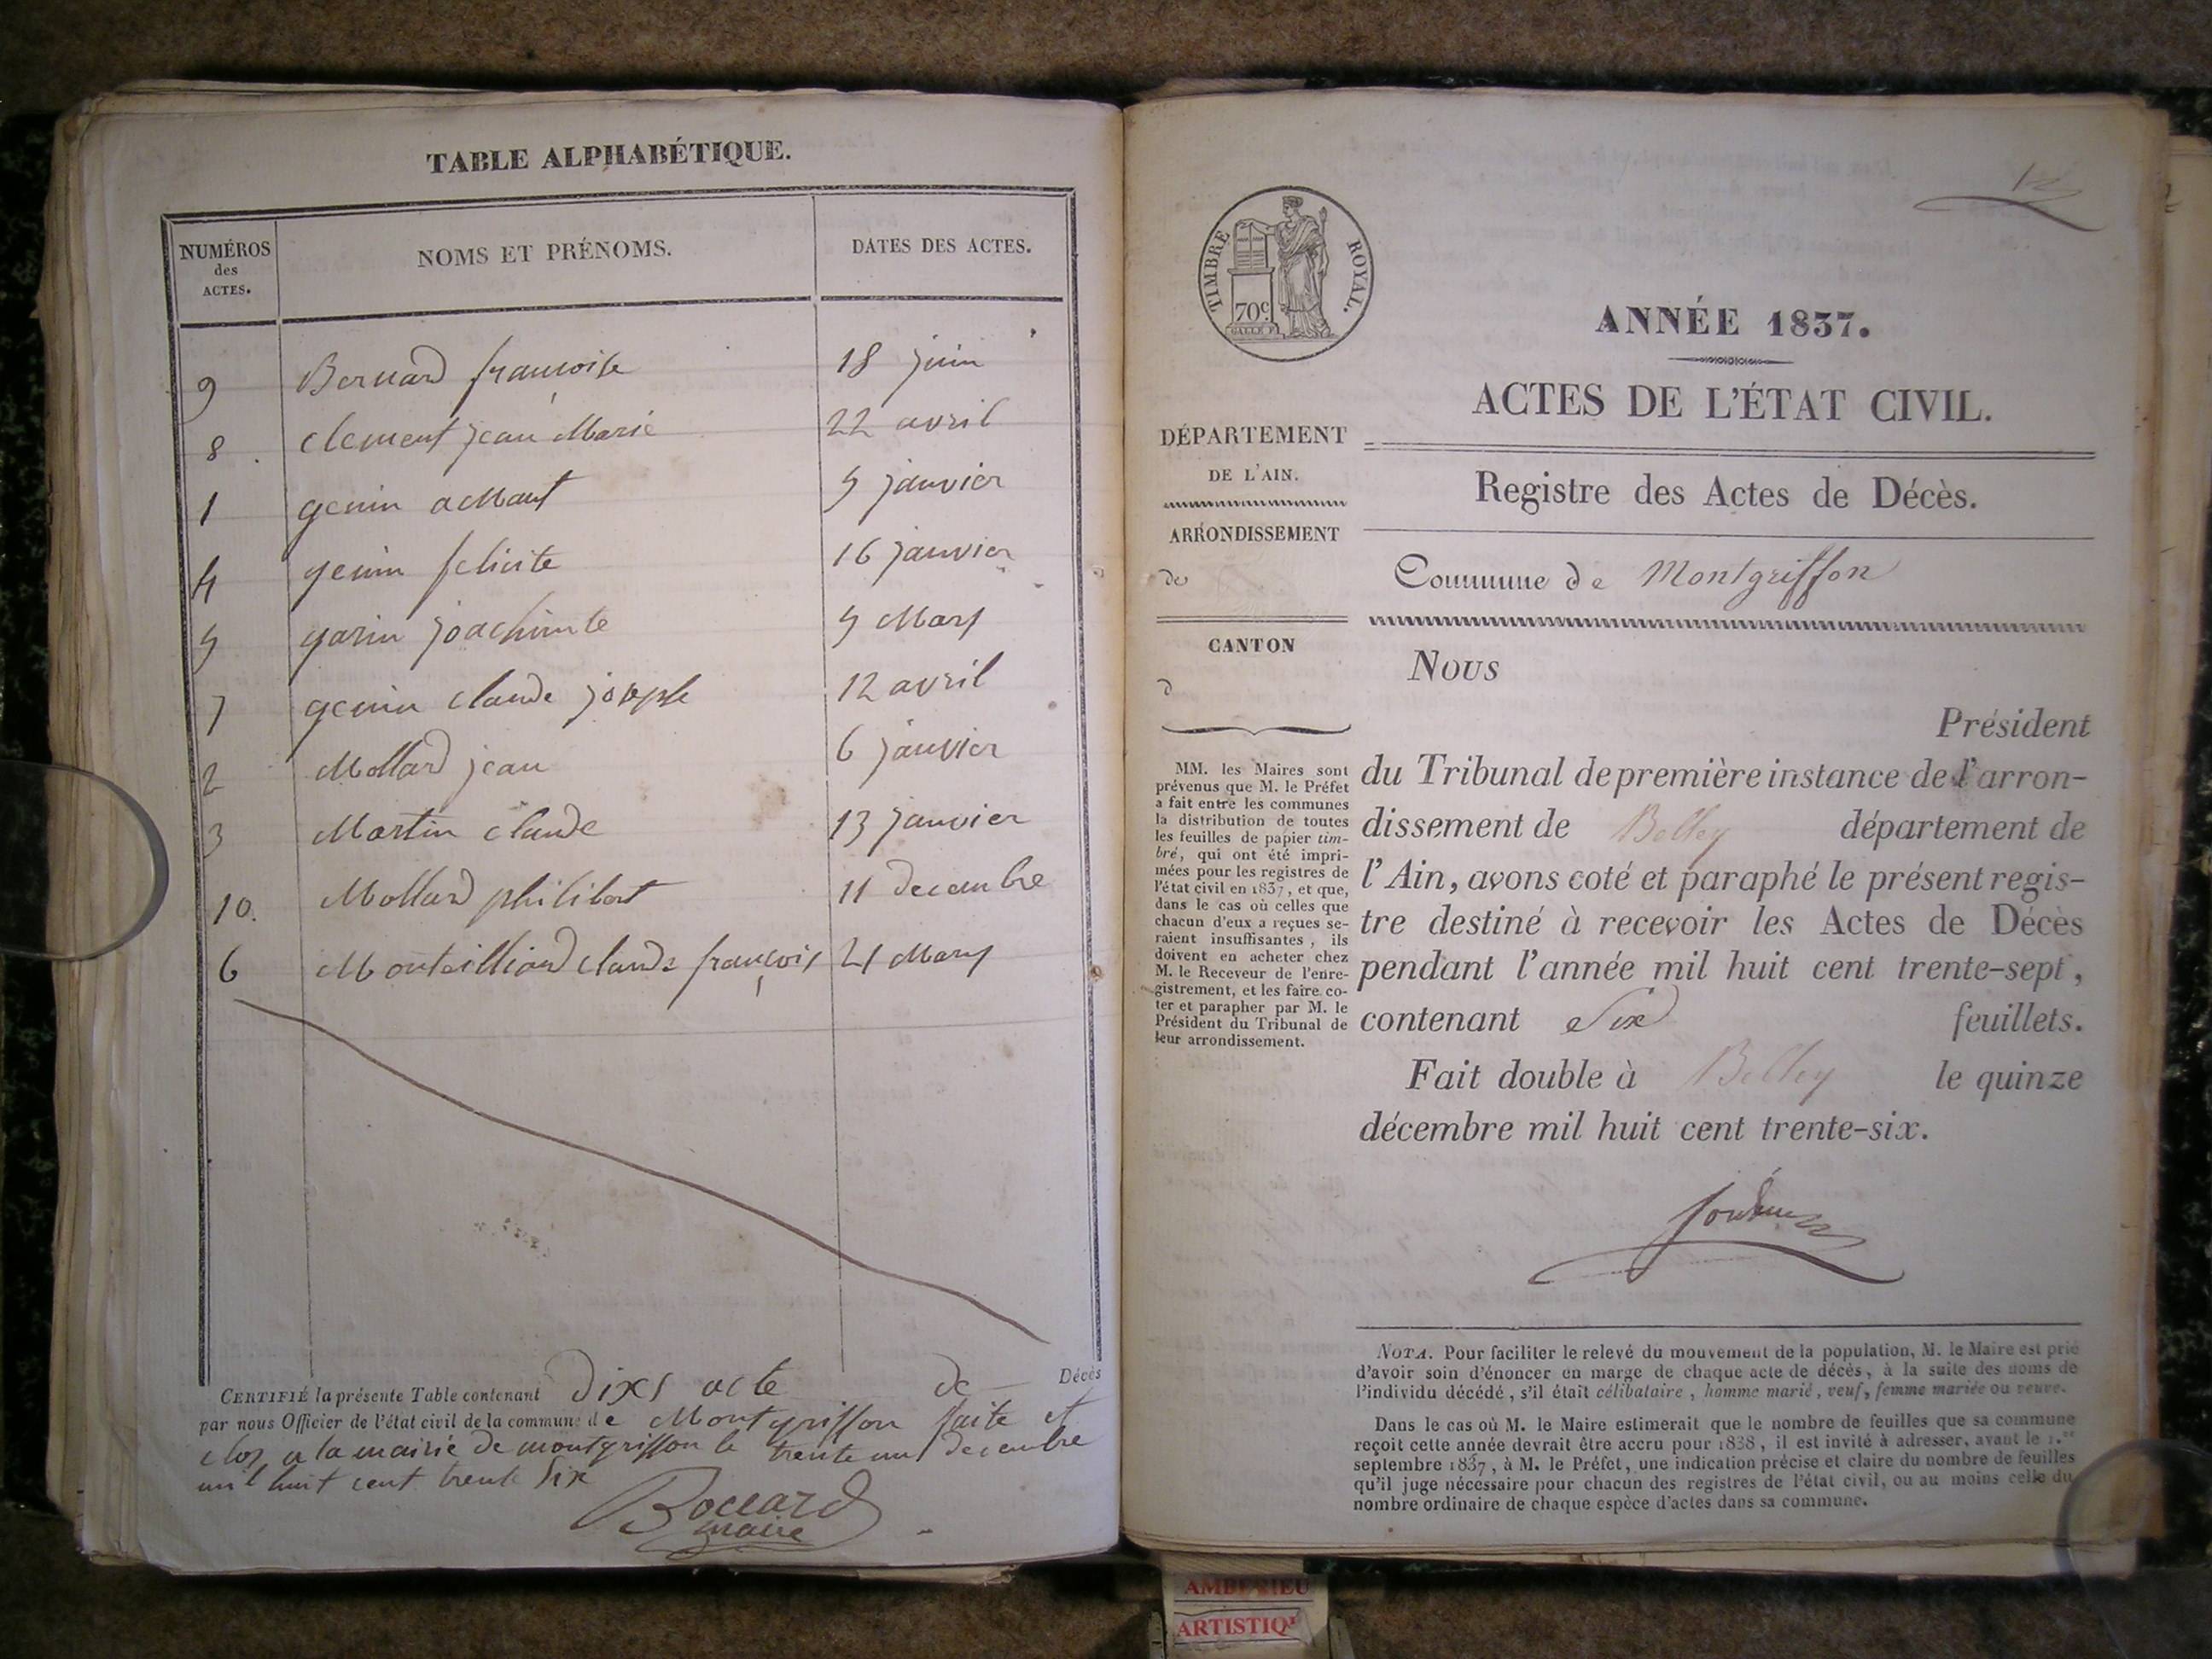 TABLE ALPHABÉTIQUE.
NUMÉROS
des
ACTES.
NOMS ET PRÉNOMS.
DATES DES ACTES.
9 Bernard francoise 18 juin
8 clement jean Marie 22 avril
1 genin aMant 5 janvier
4 genin felicite 16 janvier
5 garin joachimte 5 Mars
7 genin claude joseph 12 avril
2 Mollard jean 6 janvier
3 Martin claude 13 janvier
10. Mollard philibert 11 decembre
6 Montailliard claude françois 21 Mars
CERTIFIÉ la présente Table contenant Dixs acte de Décès
par nous Officier de l'état civil de la commune de Montgriffon faite et
clos a la mairie de montgriffon le trente un decembre
mil huit cent trente six
Boccard
maire
TIMBRE ROYAL.
70c.
GALLE F.
ANNÉE 1837.
ACTES DE L'ÉTAT CIVIL.
DÉPARTEMENT
DE L'AIN.
ARRONDISSEMENT
de
CANTON
d
MM. les Maires sont
prévenus que M. le Préfet
a fait entre les communes
la distribution de toutes
les feuilles de papier tim-
bré, qui ont été impri-
mées pour les registres de
l'état civil en 1837, et que,
dans le cas où celles que
chacun d'eux a reçues se-
raient insuffisantes, ils
doivent en acheter chez
M. le Receveur de l'enre-
gistrement, et les faire co-
ter et parapher par M. le
Président du Tribunal de
leur arrondissement.
Registre des Actes de Décès.
Commune de Montgriffon
Nous
Président
du Tribunal de première instance de l'arron-
dissement de Belley département de
l'Ain, avons coté et paraphé le présent regis-
tre destiné à recevoir les Actes de Décès
pendant l'année mil huit cent trente-sept,
contenant Six feuillets.
Fait double à Belley le quinze
décembre mil huit cent trente-six.
NOTA. Pour faciliter le relevé du mouvement de la population, M. le Maire est prié
d'avoir soin d'énoncer en marge de chaque acte de décès, à la suite des noms de
l'individu décédé, s'il était célibataire, homme marié, veuf, femme mariée ou veuve.
Dans le cas où M. le Maire estimerait que le nombre de feuilles que sa commune
reçoit cette année devrait être accru pour 1838, il est invité à adresser, avant le 1.er
septembre 1837, à M. le Préfet, une indication précise et claire du nombre de feuilles
qu'il juge nécessaire pour chacun des registres de l'état civil, ou au moins celle du
nombre ordinaire de chaque espèce d'actes dans sa commune.
AMBERIEU
ARTISTIQ